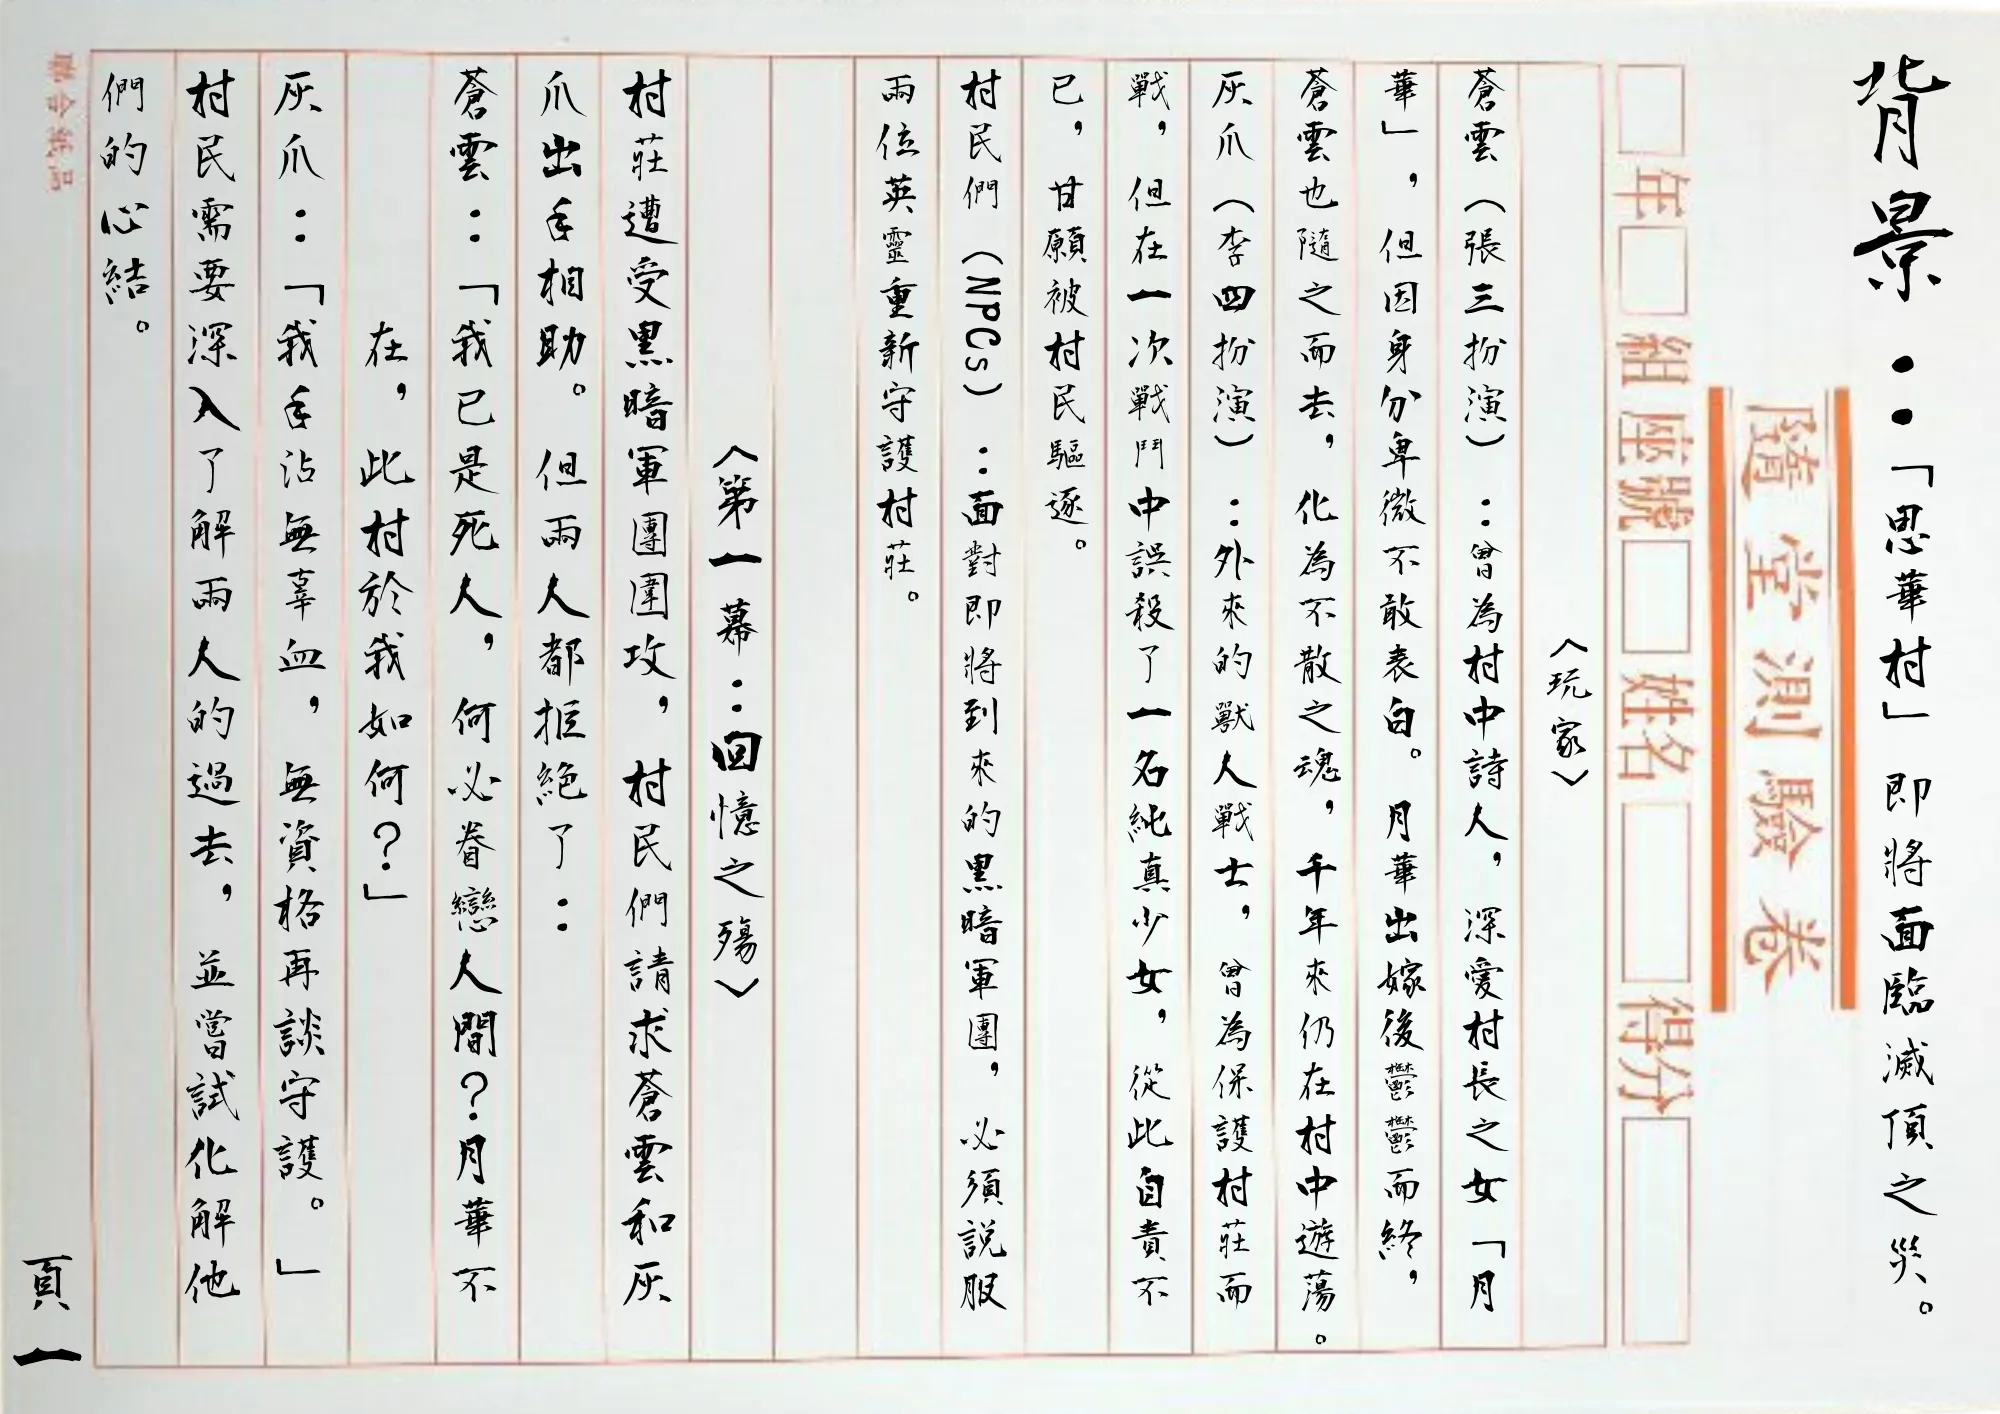 背景：「思華村」即將面臨滅頂之災。
隨堂測驗卷
年組座號姓名得分
〈玩家〉
蒼雲（張三扮演）：曾為村中詩人，深愛村長之女「月
華」，但因身分卑微不敢表白。月華出嫁後鬱鬱而終，
蒼雲也隨之而去，化為不散之魂，千年來仍在村中遊蕩。
灰爪（李四扮演）：外來的獸人戰士，曾為保護村莊而
戰，但在一次戰鬥中誤殺了一名純真少女，從此自責不
已，甘願被村民驅逐。
村民們（NPCs）：面對即將到來的黑暗軍團，必須說服
兩位英靈重新守護村莊。
〈第一幕：回憶之殤〉
村莊遭受黑暗軍團圍攻，村民們請求蒼雲和灰
爪出手相助。但兩人都拒絕了：
蒼雲：「我已是死人，何必眷戀人間？月華不
在，此村於我如何？」
灰爪：「我手沾無辜血，無資格再談守護。」
村民需要深入了解兩人的過去，並嘗試化解他
們的心結。
聯合紙品
頁一